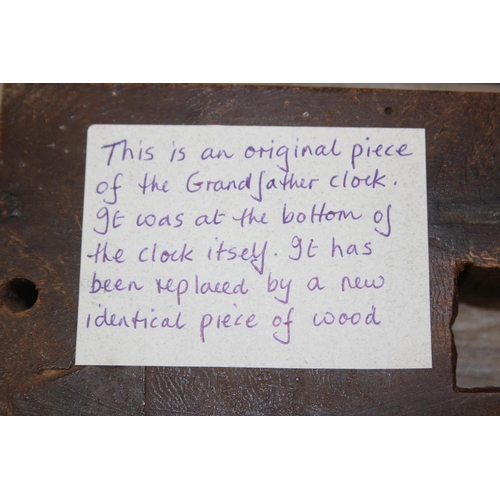 This is an original piece
of the Grandfather clock.
It was at the bottom of
the clock itself. It has
been replaced by a new
identical piece of wood